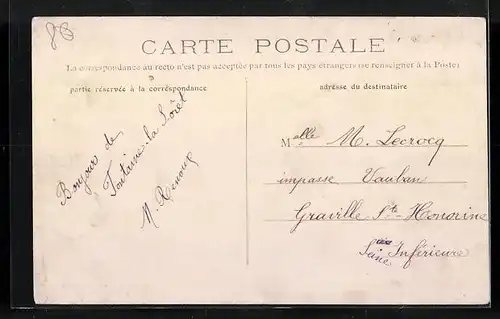 88
CARTE POSTALE
La correspondance au recto n'est pas acceptée par tous les pays étrangers (se renseigner à la Poste)
partie réservée à la correspondance
adresse du destinataire
Bonjour de
Fontaine-la Soret
M. Renoux
Melle M. Lecrocq
impasse Vauban
Graville Ste Honorine
Seine Inférieure